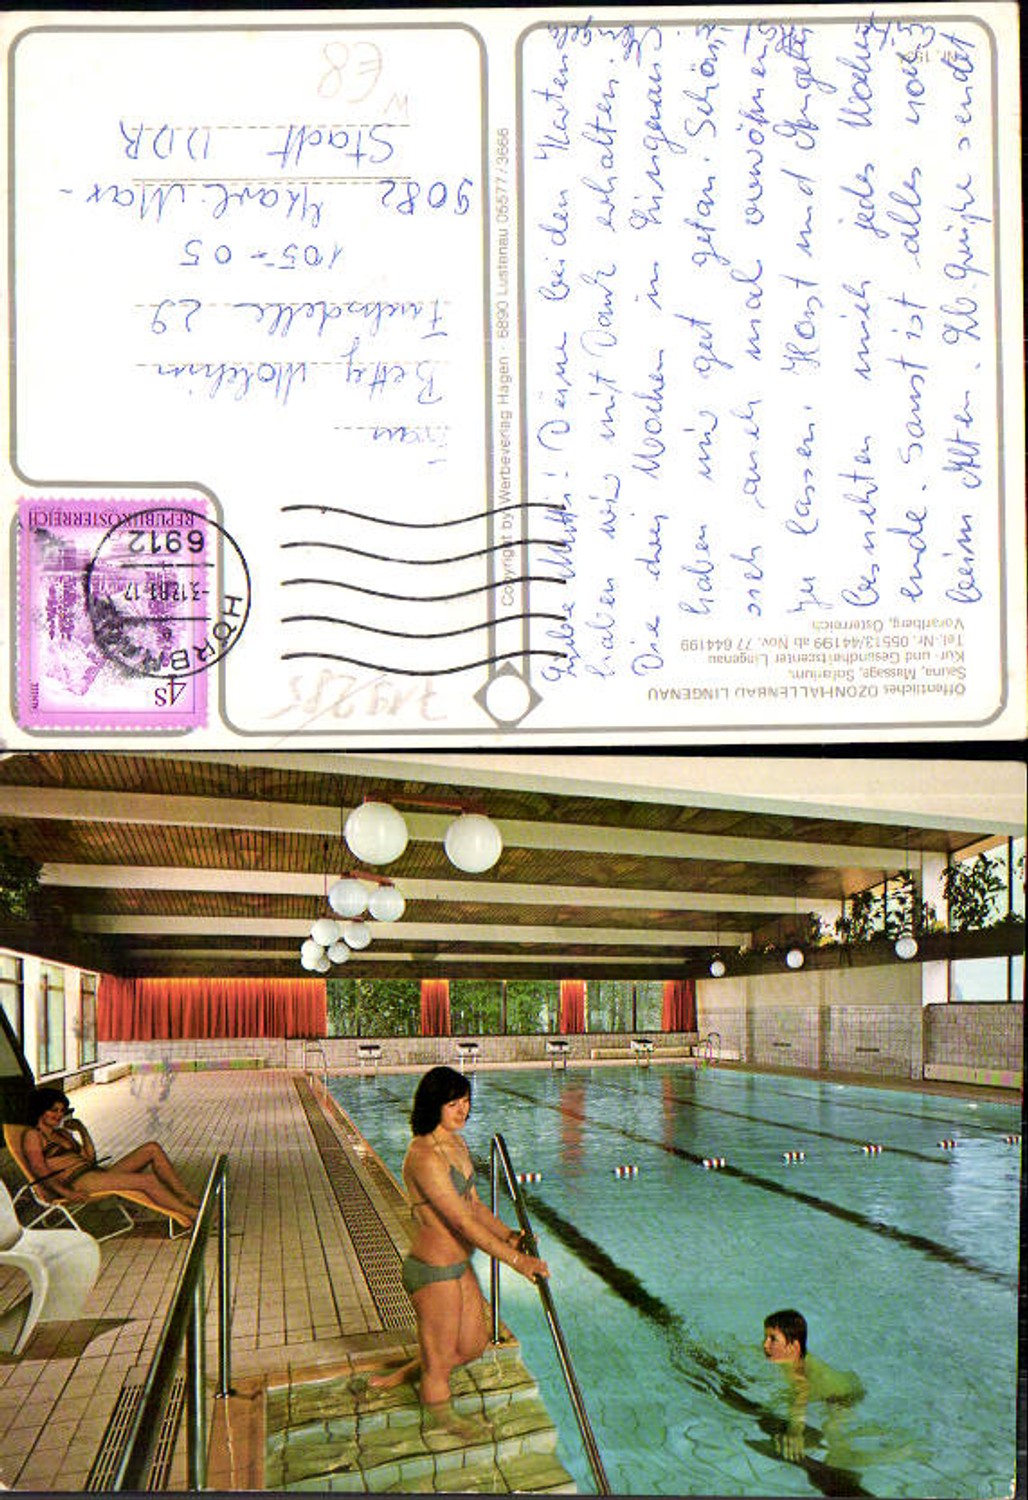 Öffentliches OZONHALLENBAD LINGENAU
Sauna, Massage, Solarium,
Kur- und Gesundheitscenter Lingenau
Tel.-Nr. 05513/44199 ab Nov. 77 644199
Vorarlberg, Österreich
Liebe Mutti! Deine beiden Karten
haben wir mit Dank erhalten.
Die drei Wochen in Lingenau
haben mir gut getan. Schön ist
sich auch mal verwöhnen
zu lassen. Horst und Angela
besuchten mich jedes Wochen
ende. Sonst ist alles noch
beim Alten. Lb. Grüße sendet
Copyright by Werbeverlag Hagen · 6890 Lustenau 05577/3666
REPUBLIK ÖSTERREICH
4S
6912
-3.12.83-17
HÖRBR
Frau
Betty
29
105-05
9082 Karl-Marx-
Stadt DDR
W
E8